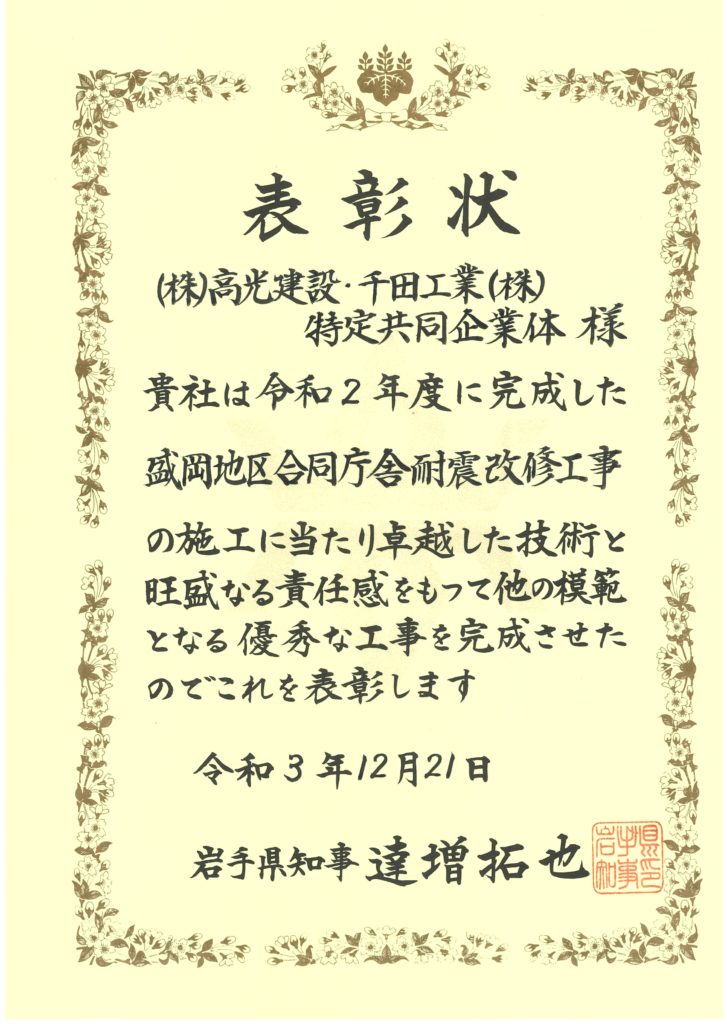 表彰状
(株)高光建設・千田工業(株)
特定共同企業体 様
貴社は令和2年度に完成した
盛岡地区合同庁舎耐震改修工事
の施工に当たり卓越した技術と
旺盛なる責任感をもって他の模範
となる優秀な工事を完成させた
のでこれを表彰します
令和3年12月21日
岩手県知事 達増拓也
岩手県知事印